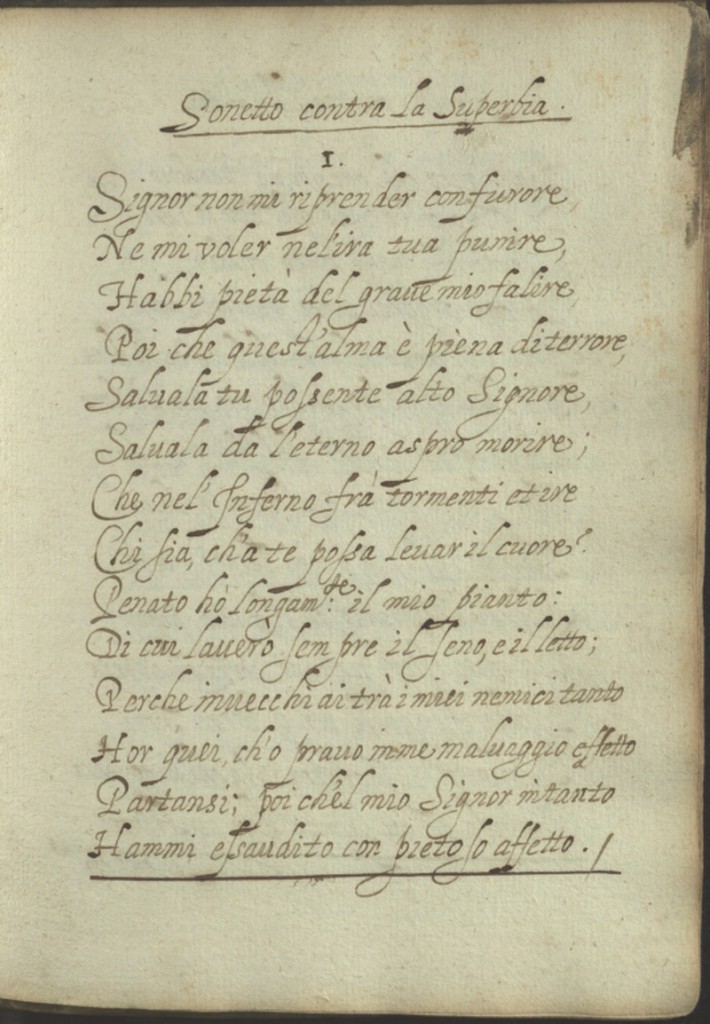 Sonetto contra la Superbia.
I.
Signor non mi riprender con furore,
Ne mi voler nel'ira tua punire,
Habbi pietà del graue mio falire,
Poi che quest'alma è pièna di terrore,
Saluala tu possente alto Signore,
Saluala da l'eterno aspro morire;
Che nel Inferno frà tormenti et ire
Chi sia, ch'a te possa leuar il cuore?
Penato hò longam:te il mio pianto:
Di cui lauerò sempre il seno, e il letto;
Perche inuecchiai trà i miei nemici tanto
Hor quei, ch'o prauo in me maluaggio effetto
Partansi; poi ch'el mio Signor intanto
Hammi essaudito con pietoso affetto. /